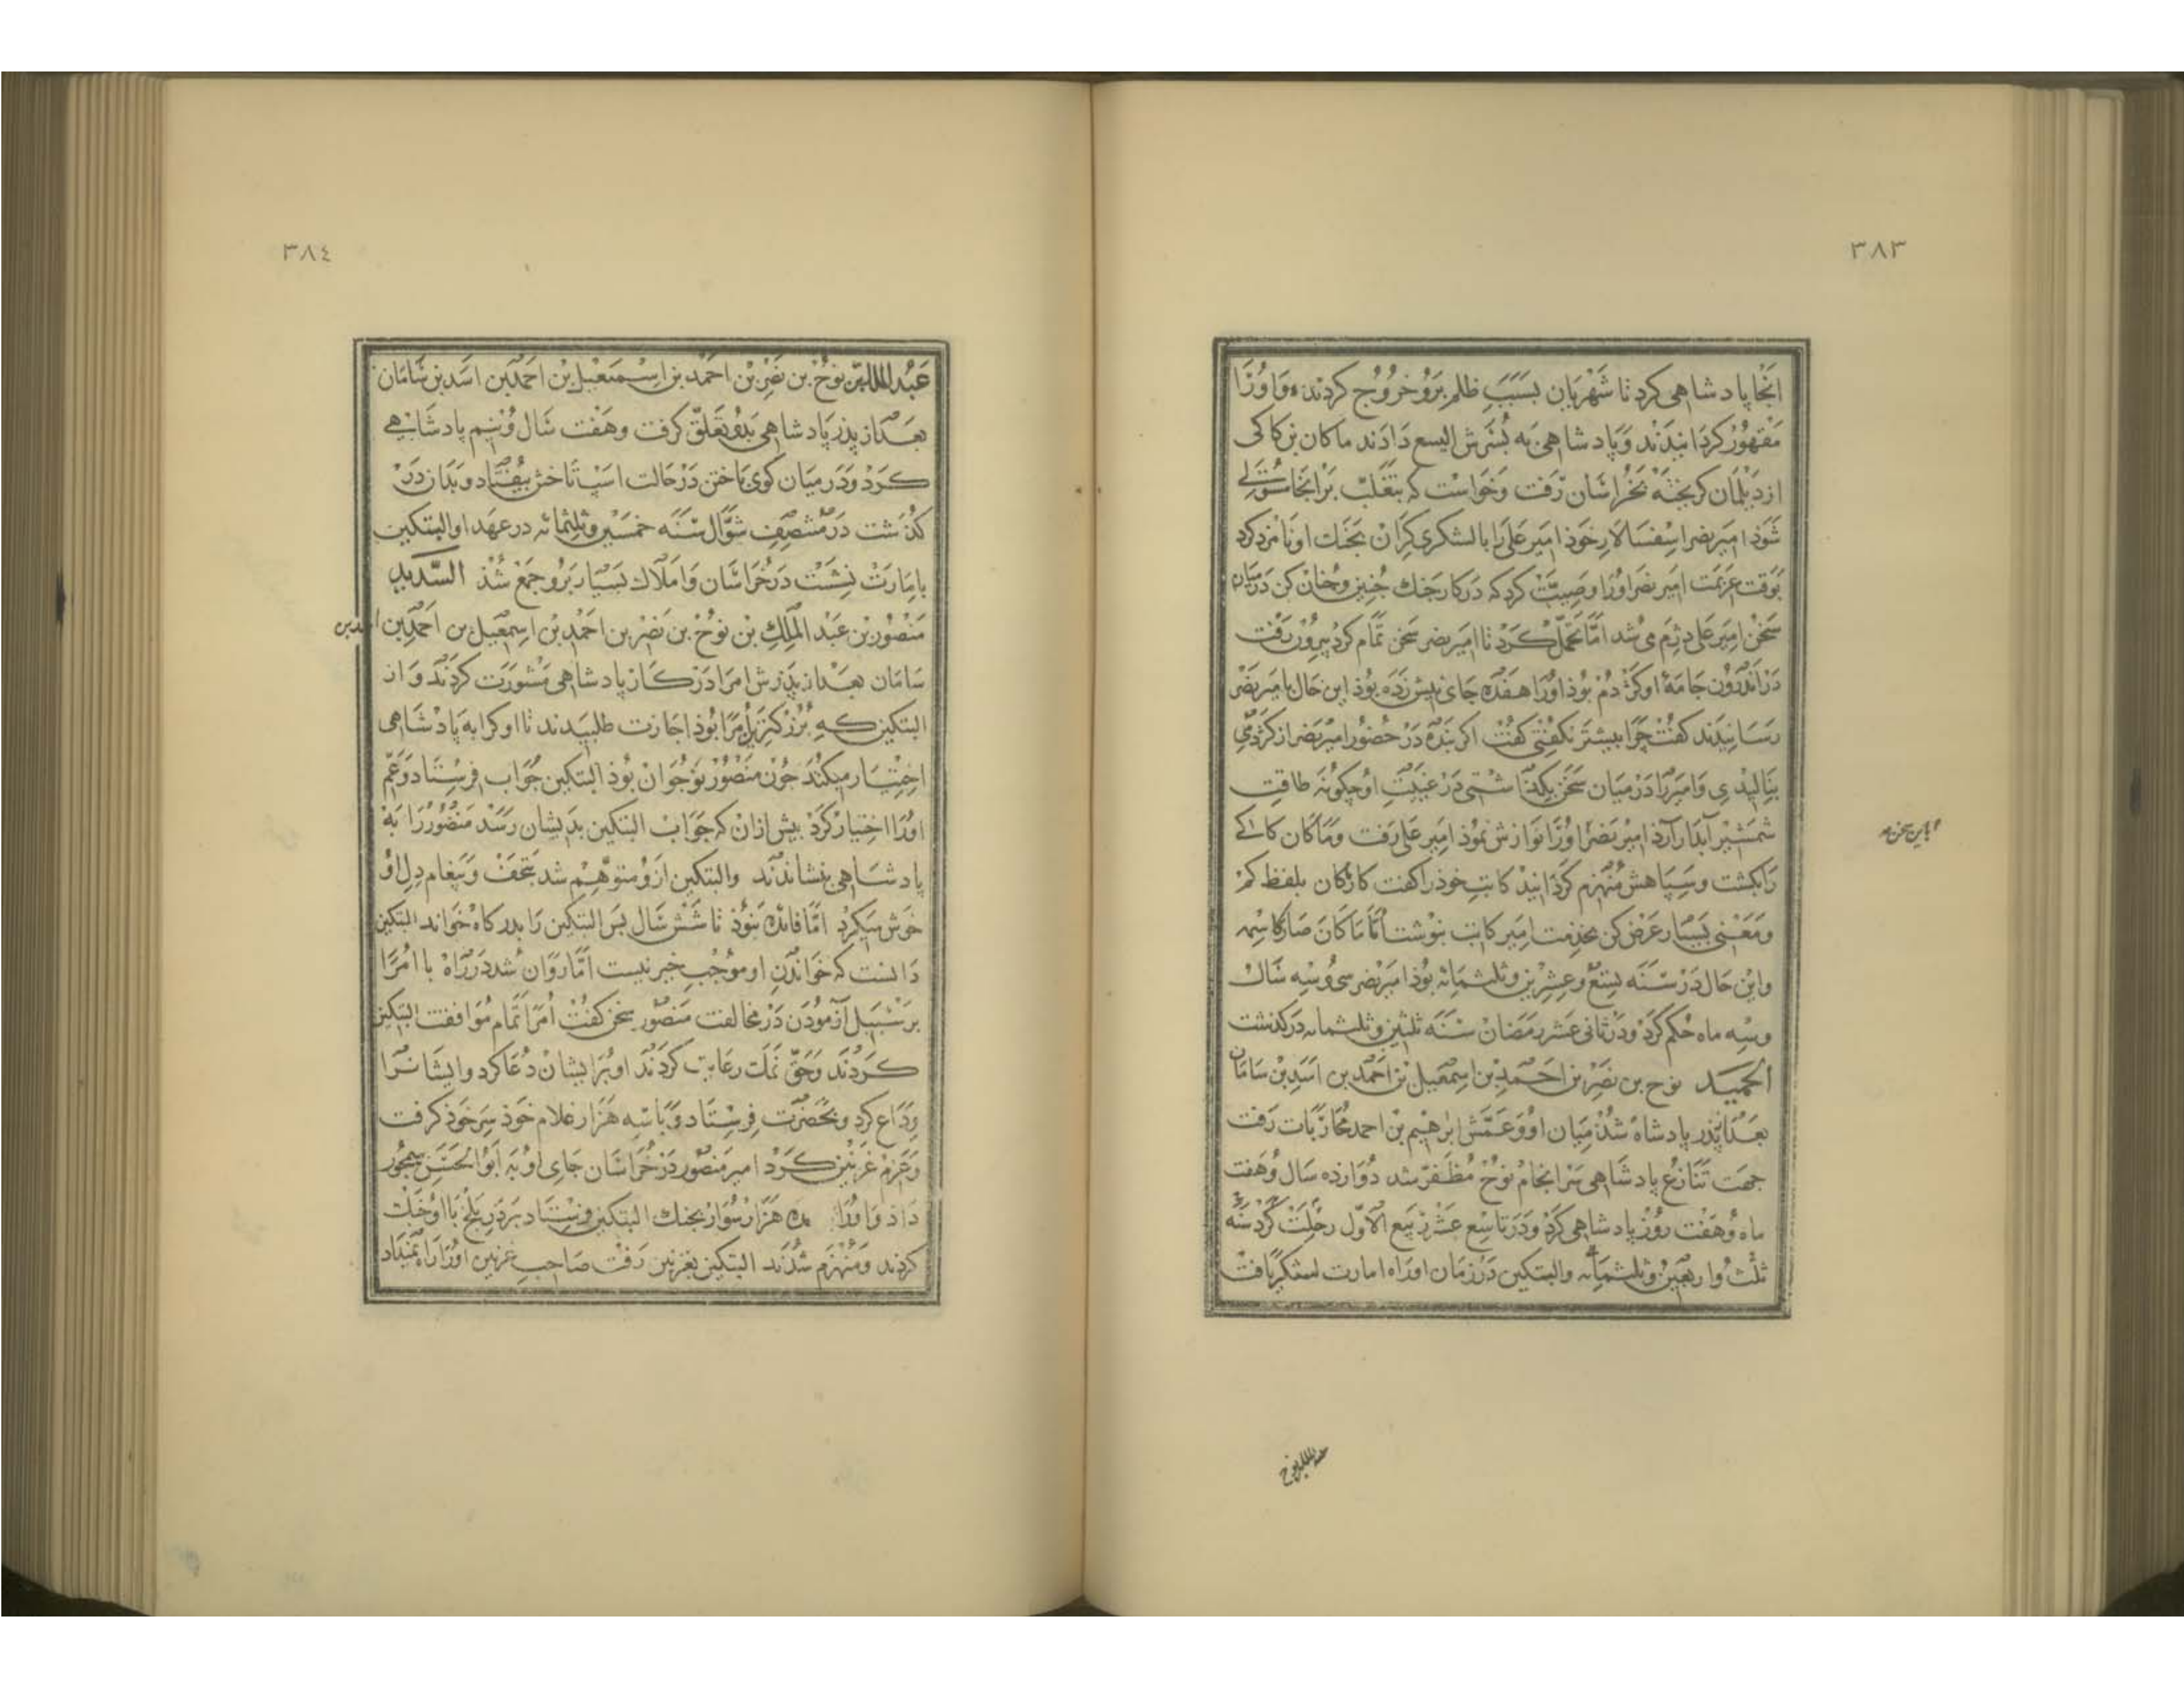 ٣٨٣
انجا پادشاهی کرد تا شهریان بسبب ظلم برو خروج کردند و او را
مقهور کردانیدند و پادشاهی به پسرش الیسع دادند ماکان بن کاکی
از دیلمان کریخته بخراسان رفت و خواست که بتغلب بر انجا مستولی
شود امیر نصر اسفسالار خود امیر علی را با لشکری کران بجنک او نامزد کرد
بوقت عزیمت امیر نصر او را وصیت کرد که در کار جنک چنین و چنان کن در میان
سخن امیر علی دژم می شد اما تحمل کرد تا امیر نصر سخن تمام کرد بیرون رفت
در اندرون جامه او کژدم بوذ او را هفده جای نیش زده بوذ این حال با میر نصر
رسانیدند کفت چرا بیشتر نکفتی کفت اکر بنده در حضور امیر نصر از کژدمی
بنالیدی و امیر را در میان سخن بکذاشتی در غیبت او چکونه طاقت
شمشیر آبدار آرد امیر نصر او را نوازش نموذ امیر علی رفت و ماکان کاکی
را بکشت و سپاهش منهزم کردانید کاتب خوذ را کفت کار ماکان بلفظ کم
و معنی بسیار عرض کن بخدمت امیر کاتب بنوشت اما ماکان صار کاسمه
و این حال در سنه تسع و عشرین و ثلثمائه بوذ امیر نصر سی و سه سال
و سه ماه حکم کرد و در ثانی عشر رمضان سنه ثلثین و ثلثمائه در کذشت
الحمید نوح بن نصر بن احمد بن اسمعیل بن احمد بن اسد بن سامان
بعد از پدر پادشاه شد میان او و عمش ابرهیم بن احمد محاربات رفت
جهت تنازع پادشاهی سرانجام نوح مظفر شد دوازده سال و هفت
ماه و هفت روز پادشاهی کرد و در تاسع عشر ربیع الاول رحلت کرد سنه
ثلث و اربعین و ثلثمائه و البتکین در زمان او راه امارت لشکر یافت
با این سخن
عبد الملک بن نوح
٣٨٤
عبد الملک بن نوح بن نصر بن احمد بن اسمعیل بن احمد بن اسد بن سامان
بعد از پدر پادشاهی بدو تعلق کرفت و هفت سال و نیم پادشاهی
کرد و در میان کوی باختن در حالت اسپ تاختن بیفتاد و بدان در
کذشت در منتصف شوال سنه خمسین و ثلثمائه در عهد او البتکین
بامارت نشست در خراسان و املاک بسیار برو جمع شد السدید
منصور بن عبد الملک بن نوح بن نصر بن احمد بن اسمعیل بن احمد بن اسد بن
سامان بعد از پدرش امرا در کار پادشاهی مشورت کردند و از
البتکین که بزرکترین امرا بوذ اجازت طلبیدند تا او کرا به پادشاهی
اختیار میکند چون منصور نوجوان بوذ البتکین جواب فرستاد و عم
او را اختیار کرد پیش از ان که جواب البتکین بدیشان رسد منصور را به
پادشاهی بنشاندند و البتکین ازو متوهم شد بتحف و پیغام دل او
خوش میکرد اما فائده نبوذ تا شش سال بس البتکین را بدرکاه خواند البتکین
دانست که خواندن او موجب خیر نیست اما روان شد در راه با امرا
بر سبیل آزمودن در مخالفت منصور سخن کفت امرا تمام موافقت البتکین
کردند و حق نمک رعایت کردند او برایشان دعا کرد و ایشانرا
وداع کرد و بحضرت فرستاد و با سه هزار غلام خوذ سر خوذ کرفت
و عزم غزنین کرد امیر منصور در خراسان جای او به ابو الحسن سیمجور
داد و او را ده هزار سوار بجنک البتکین فرستاد بر در بلخ با او جنک
کردند و منهزم شدند البتکین بغزنین رفت صاحب غزنین او را راه نمیداد